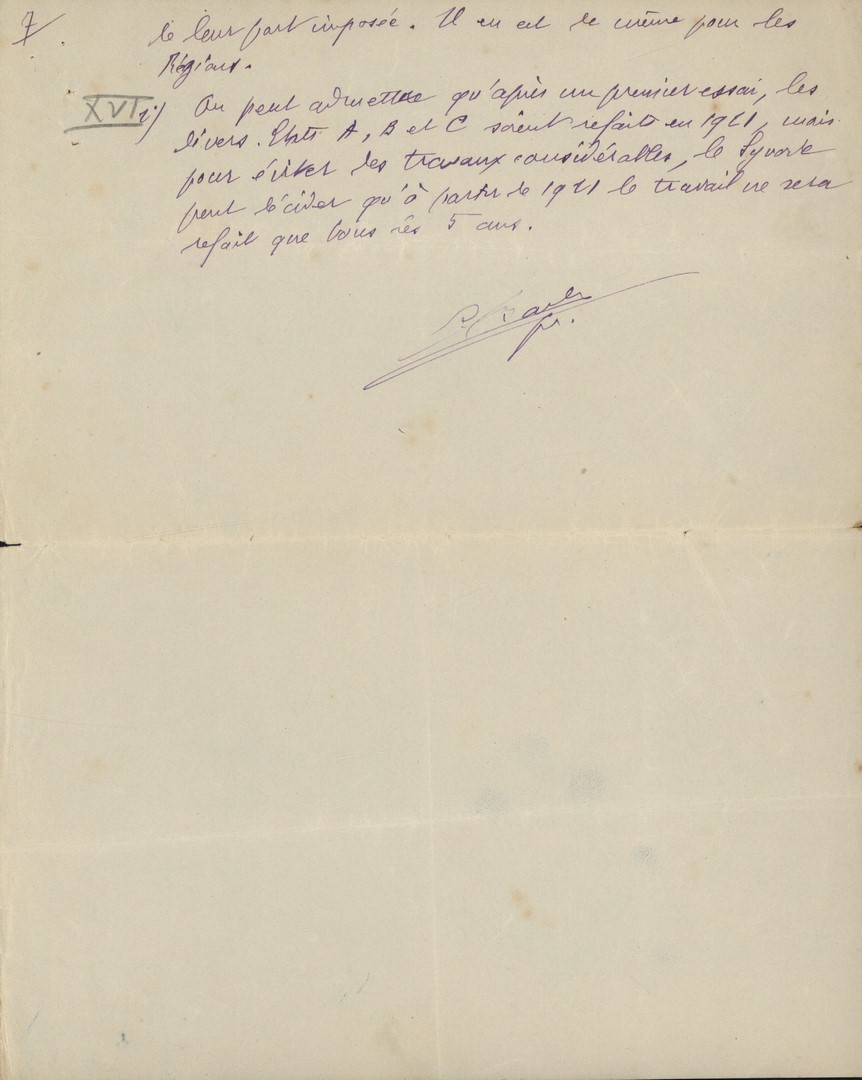 7/.
de leur part imposée. Il en est de même pour les
Régions.
XVI i) On peut admettre qu'après un premier essai, les
divers Etats A, B et C soient refaits en 1921, mais
pour éviter des travaux considérables, le Synode
peut décider qu'à partir de 1921 le travail ne sera
refait que tous les 5 ans.